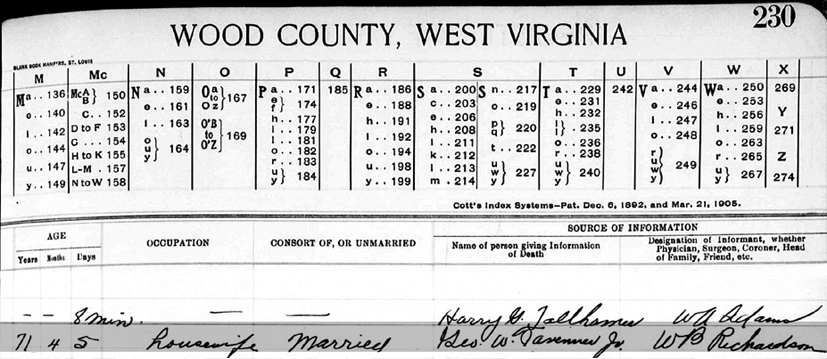 230
WOOD COUNTY, WEST VIRGINIA
BLANK BOOK MAKERS, ST. LOUIS
M Mc N O P Q R S T U V W X
Ma..136 McA B} 150 Na..159 Oa to Oz}167 Pa..171 185 Ra..186 Sa..200 Sn..217 Ta..229 242 Va..244 Wa..250 269
e..140 C..152 e..161 e f} 174 e..188 c..203 o..219 e..231 e..246 e..253
i..142 D to F 153 i..163 O'B to O'Z}169 h..177 h..191 e..206 p q} 220 h..232 i..247 h..256 Y
o..144 G....154 o u y} 164 i..179 i..192 h..208 t..222 i l} 235 o..248 i..259 271
u..147 H to K 155 l..181 o..194 i..211 u w y} 227 o..236 r u y} 249 o..263 Z
y..149 L-M.157 o..182 u..198 k..212 r..238 r..265 274
N to W 158 r..183 y..199 l..213 u w y} 240 u y} 267
u y} 184 m..214
Cott's Index Systems—Pat. Dec. 6, 1892, and Mar. 21, 1905.
AGE OCCUPATION CONSORT OF, OR UNMARRIED SOURCE OF INFORMATION
Years Months Days Name of person giving Information of Death Designation of Informant, whether Physician, Surgeon, Coroner, Head of Family, Friend, etc.
— — 8 min. — — Harry G. Tallhamer W A Adams
71 4 5 housewife Married Geo. W. Tavenner Jr. W B Richardson